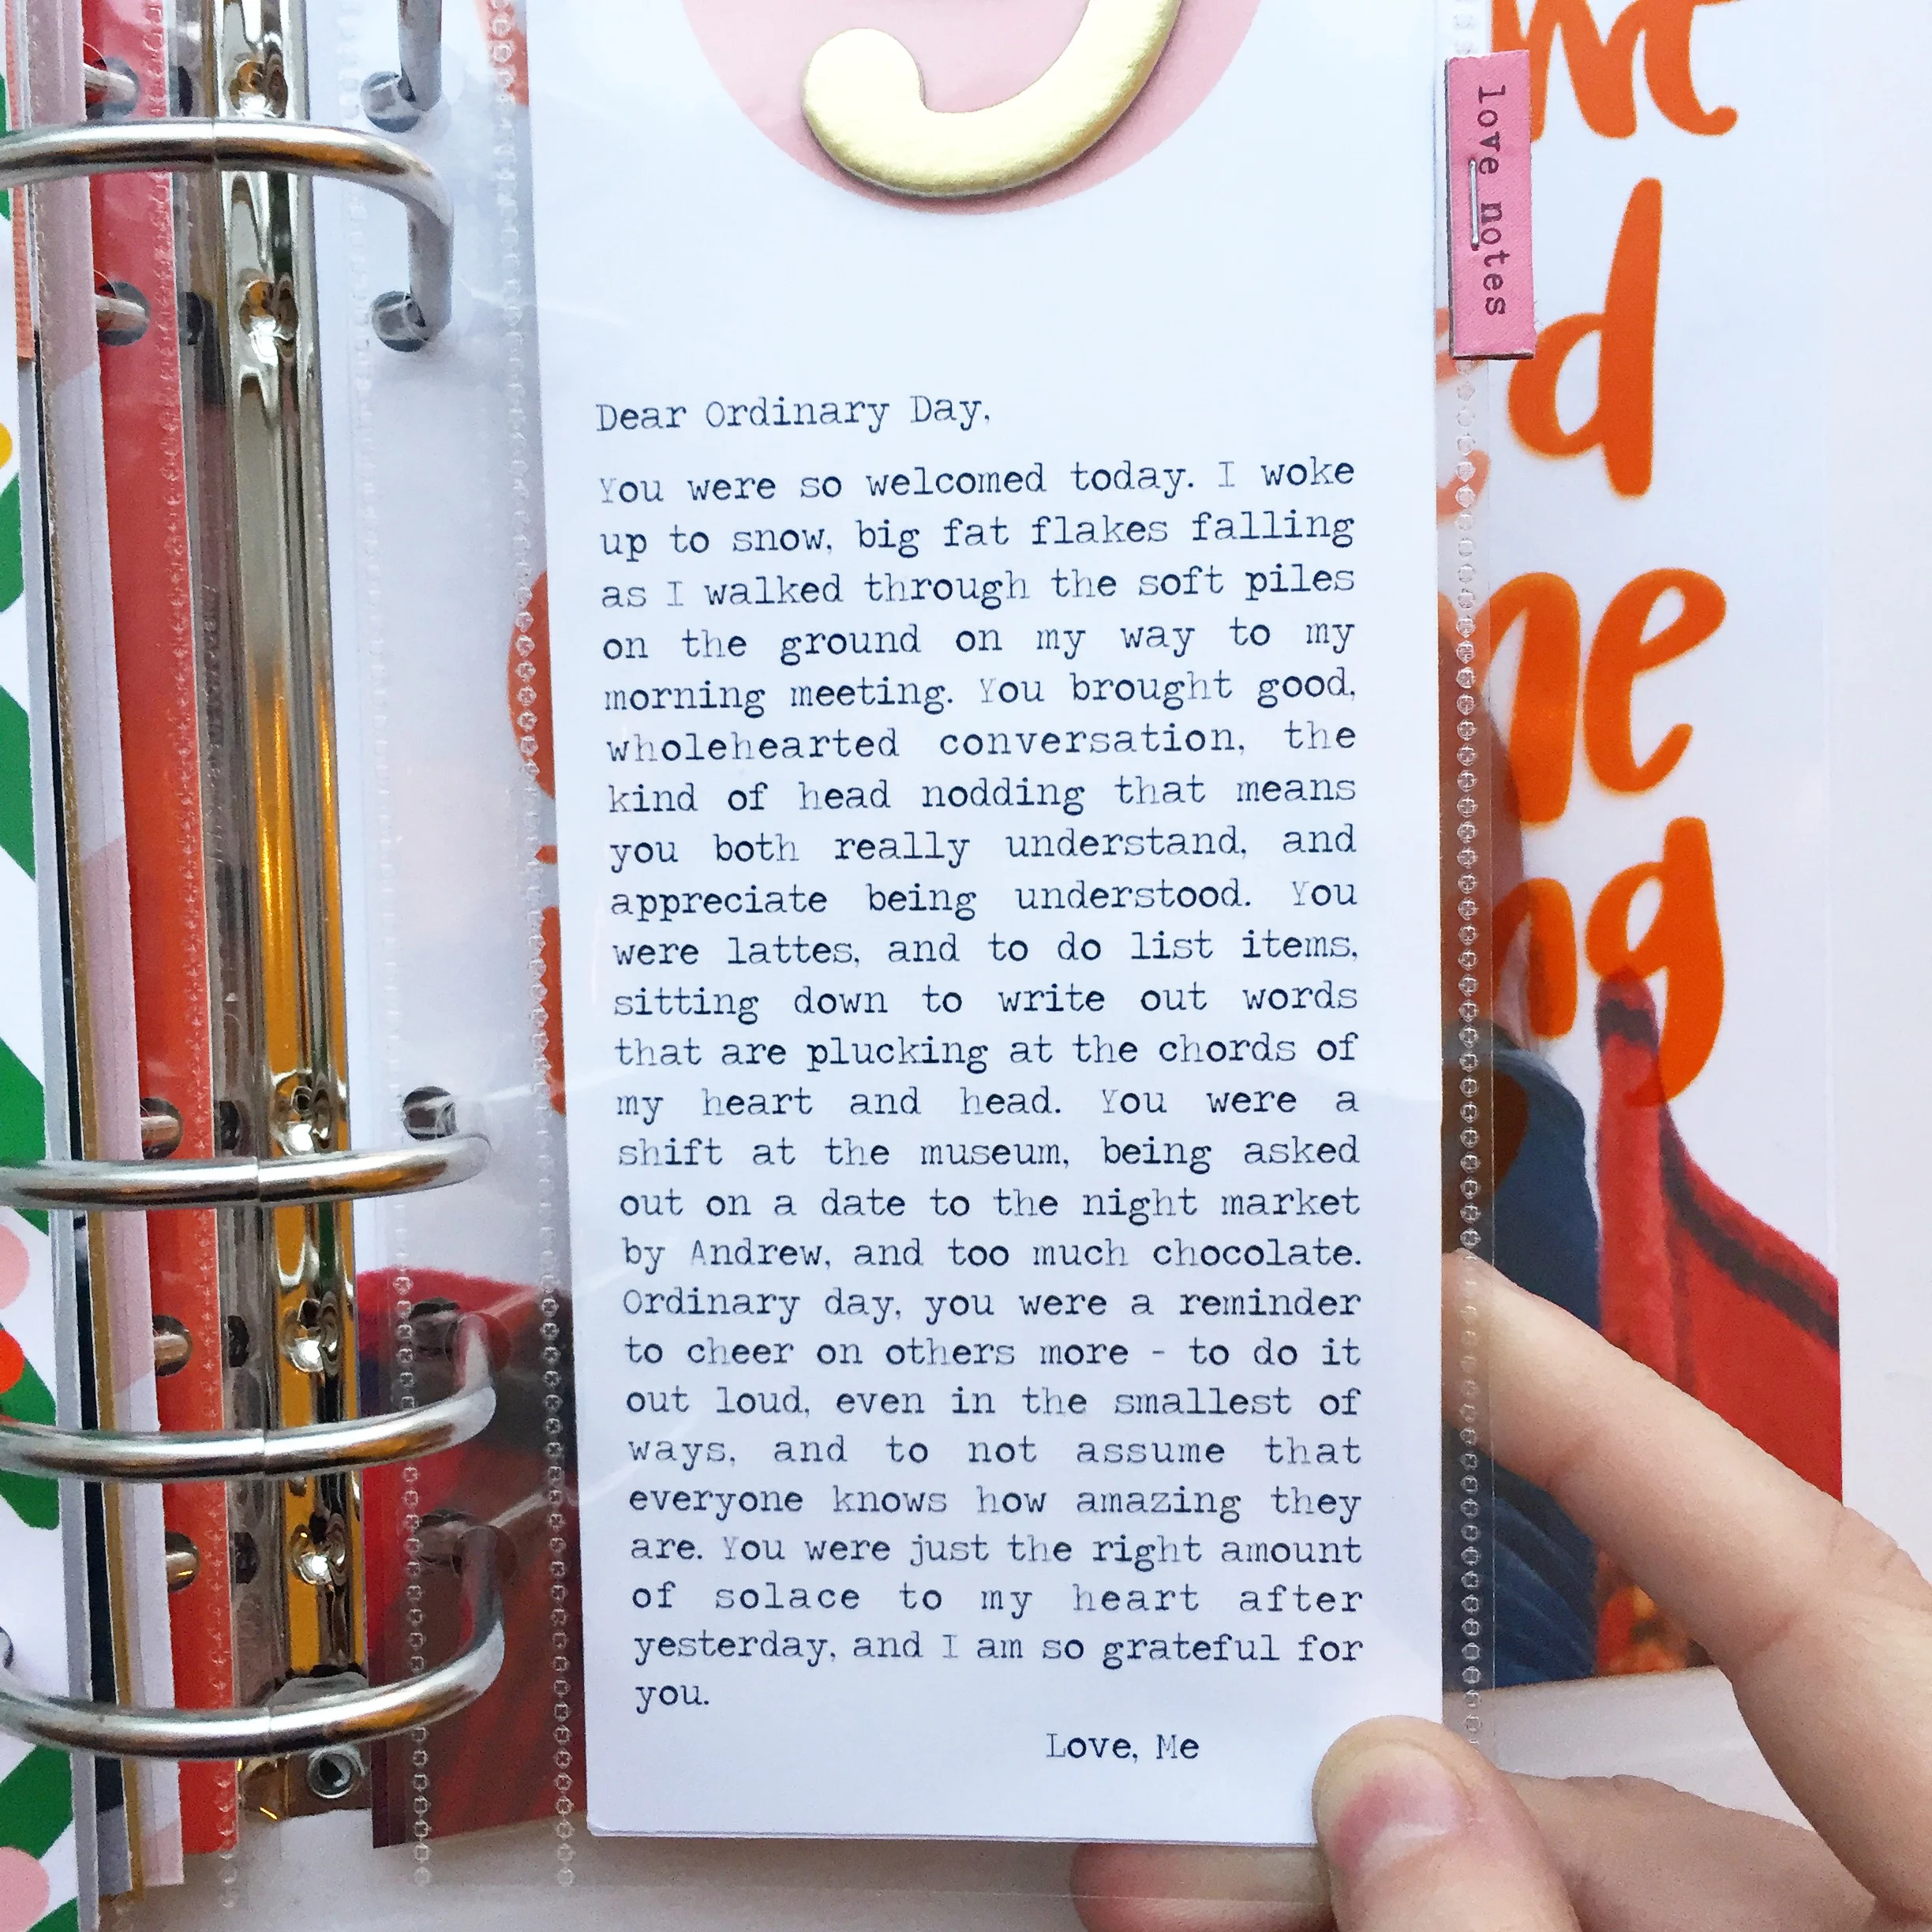 love notes
Dear Ordinary Day,
You were so welcomed today. I woke
up to snow, big fat flakes falling
as I walked through the soft piles
on the ground on my way to my
morning meeting. You brought good,
wholehearted conversation, the
kind of head nodding that means
you both really understand, and
appreciate being understood. You
were lattes, and to do list items,
sitting down to write out words
that are plucking at the chords of
my heart and head. You were a
shift at the museum, being asked
out on a date to the night market
by Andrew, and too much chocolate.
Ordinary day, you were a reminder
to cheer on others more - to do it
out loud, even in the smallest of
ways, and to not assume that
everyone knows how amazing they
are. You were just the right amount
of solace to my heart after
yesterday, and I am so grateful for
you.
Love, Me